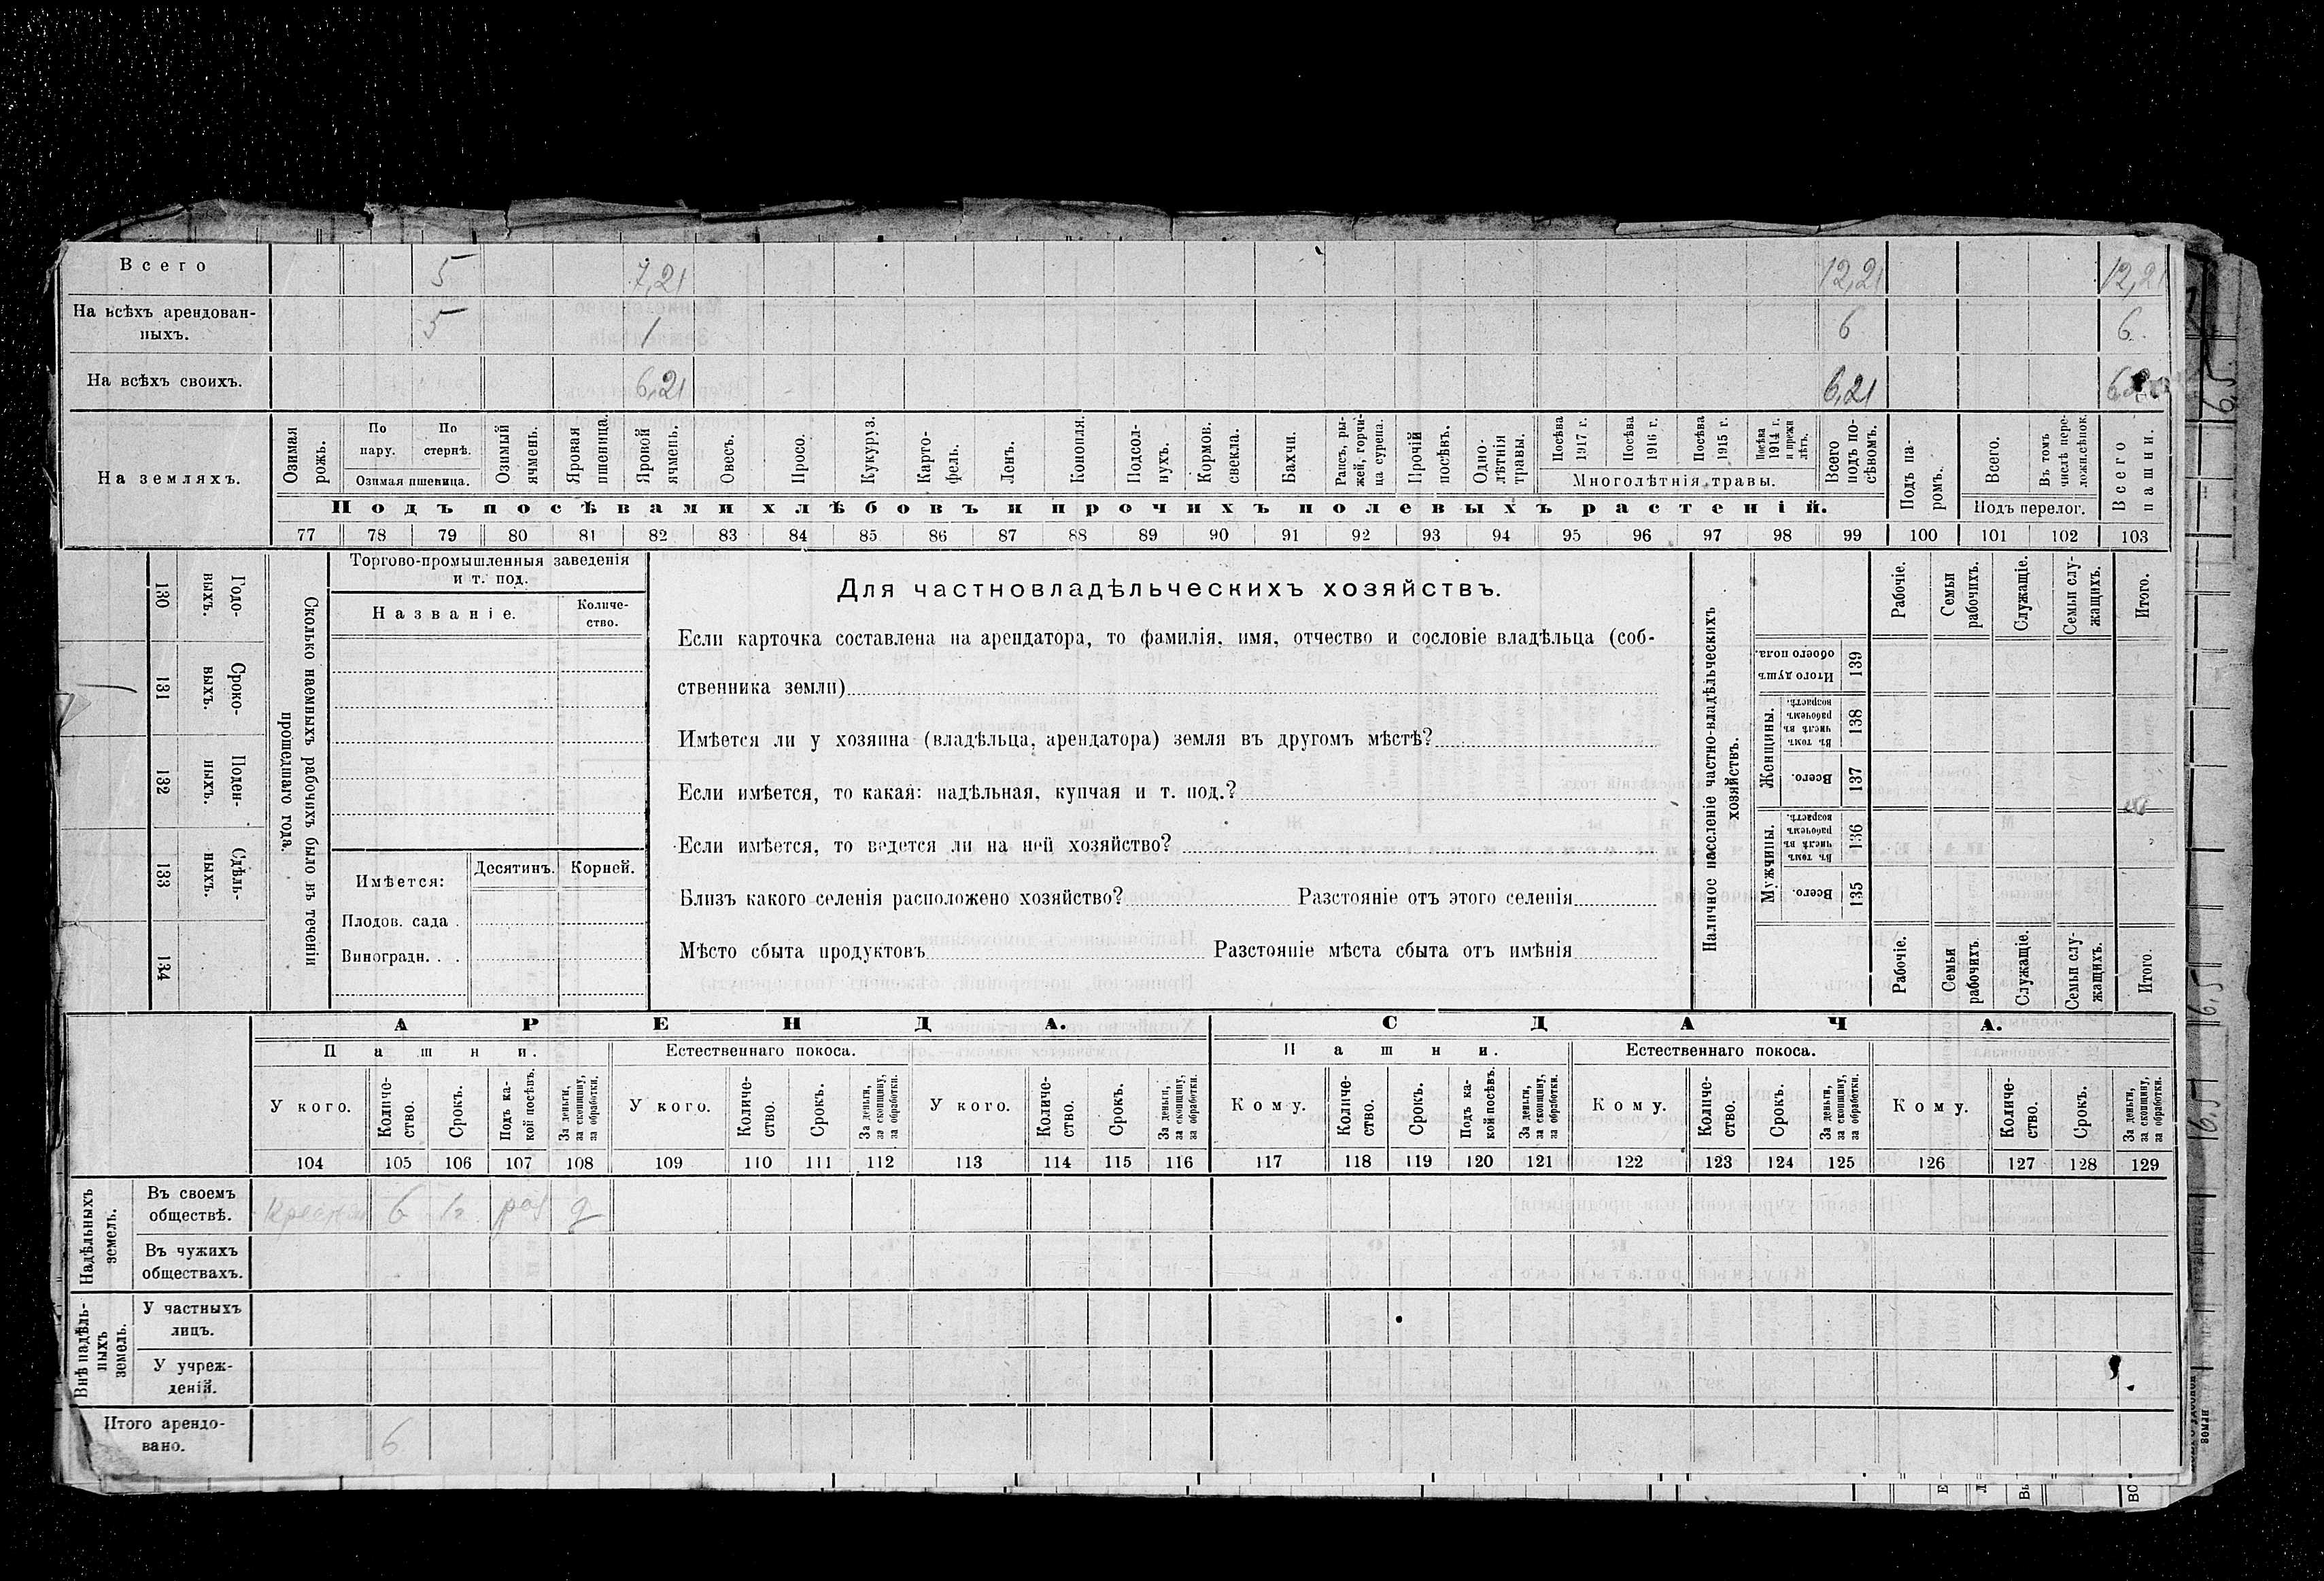 Всего 5 7,21 12,21 12,21
На всѣхъ арендован-
ныхъ. 5 1 6 6
На всѣхъ своихъ. 6,21 6,21
На земляхъ.
Озимая рожь.
По пару.
По стернѣ.
Озимая пшеница.
Озимый ячмень.
Яровая пшеница.
Яровой ячмень.
Овесъ.
Просо.
Кукуруз.
Карто-
фель.
Ленъ.
Конопля.
Подсол-
нухъ.
Кормов. свекла.
Бахчи.
Рапсъ, ры-
жей, горчи-
ца сурепа.
Прочій посѣвъ.
Одно-
лѣтнія травы.
Посѣва 1917 г.
Посѣва 1916 г.
Посѣва 1915 г.
Посѣва 1914 г. и прежн лѣтъ.
Многолѣтнія травы.
Всего подъ по-
сѣвомъ.
Подъ па-
ромъ.
Всего.
Въ томъ числѣ пере-
ложн.сѣнок.
Подъ перелог.
Всего пашни.
Подъ посѣвами хлѣбовъ и прочихъ полевыхъ растеній.
77 78 79 80 81 82 83 84 85 86 87 88 89 90 91 92 93 94 95 96 97 98 99 100 101 102 103
130 Годо-
выхъ.
131 Сроко-
выхъ.
132 Поден-
ныхъ.
133 Сдѣль-
ныхъ.
134
Сколько наемныхъ рабочихъ было въ теченіи
прошедшаго года.
Торгово-промышленныя заведенія
и т. под.
Названіе.
Количе-
ство.
Имѣется:
Десятинъ.
Корней.
Плодов. сада .
Виноградн. . .
Для частновладѣльческихъ хозяйствъ.
Если карточка составлена на арендатора, то фамилія, имя, отчество и сословіе владѣльца (соб-
ственника земли)
Имѣется ли у хозяина (владѣльца, арендатора) земля въ другомъ мѣстѣ?
Если имѣется, то какая: надѣльная, купчая и т. под.?
Если имѣется, то ведется ли на ней хозяйство?
Близъ какого селенія расположено хозяйство? Разстояніе отъ этого селенія
Мѣсто сбыта продуктовъ Разстояніе мѣста сбыта отъ имѣнія
Наличное населеніе частно-владѣльческихъ
хозяйствъ.
Рабочіе.
Семьи рабочихъ.
Служащіе.
Семьи слу-
жащихъ.
Итого.
Итого душъ обоего пола. 139
Женщины.
Въ томъ числѣ въ рабочемъ возрастѣ. 138
Всего. 137
Мужчины.
Въ томъ числѣ въ рабочемъ возрастѣ. 136
Всего. 135
Рабочіе.
Семьи рабочихъ.
Служащіе.
Семьи слу-
жащихъ.
Итого.
АРЕНДА. СДАЧА.
Пашни. Естественнаго покоса. Пашни. Естественнаго покоса.
У кого.
Количе-
ство.
Срокъ.
Подъ ка-
кой посѣвъ.
За деньги, за скопщину, за обработки.
У кого.
Количе-
ство.
Срокъ.
За деньги, за скопщину, за обработки.
У кого.
Количе-
ство.
Срокъ.
За деньги, за скопщину, за обработки.
Кому.
Количе-
ство.
Срокъ.
Подъ ка-
кой посѣвъ.
За деньги, за скопщину, за обработки.
Кому.
Количе-
ство.
Срокъ.
За деньги, за скопщину, за обработки.
Кому.
Количе-
ство.
Срокъ.
За деньги, за скопщину, за обработки.
104 105 106 107 108 109 110 111 112 113 114 115 116 117 118 119 120 121 122 123 124 125 126 127 128 129
Надѣльныхъ земель.
Въ своемъ
обществѣ. 6 1г
Въ чужихъ
обществахъ.
Внѣ надѣль-
ныхъ земель.
У частныхъ
лицъ.
У учреж-
деній.
Итого арендо-
вано. 6
6,5
16,5
16,5